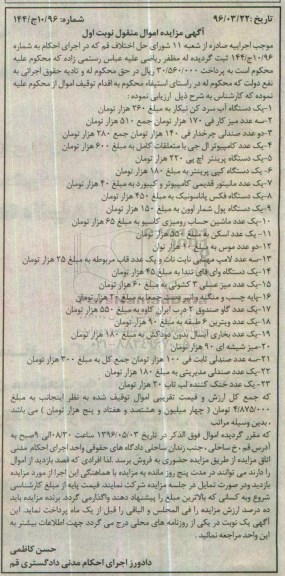 تاریخ: ۹۶/۰۳/۲۲ شماره: ۱۴۴/ج۱۰/۹۶
آگهی مزایده اموال منقول نوبت اول
موجب اجراییه صادره از شعبه ۱۱ شورای حل اختلاف قم که در اجرای احکام به شماره
۱۴۴/ج۱۰/۹۶ ثبت گردیده له مظفر ریاضی علیه عباس رستمی زاده که محکوم علیه
محکوم است به پرداخت ۳۰/۵۶۰/۰۰۰ ریال در حق محکوم له و تادیه حقوق اجرائی به
نفع دولت که محکوم له در راستای استیفاء محکوم به اقدام توقیف اموال از محکوم علیه
نموده که کارشناس به شرح ذیل ارزیابی نموده:
۱-یک دستگاه آب سرد کن نیکار به مبلغ ۲۶۰ هزار تومان
۲-سه عدد میز کار فی ۱۷۰ هزار تومان جمع ۵۱۰ هزار تومان
۳-دو عدد صندلی چرخدار فی ۱۴۰ هزار تومان جمع ۲۸۰ هزار تومان
۴-یک عدد کامپیوتر ال جی با متعلقات کامل به مبلغ ۶۰۰ هزار تومان
۵-یک دستگاه پرینتر اچ پی ۲۲۰ هزار تومان
۶- یک دستگاه کپی پرینتر به مبلغ ۱۸۰ هزار تومان
۷-یک عدد مانیتور قدیمی کامپیوتر و کیبورد به مبلغ ۴۰ هزار تومان
۸-یک دستگاه فکس پاناسونیک به مبلغ ۴۵۰ هزار تومان
۹-یک دستگاه پول شمار اوون به مبلغ ۱۵۰ هزار تومان
۱۰-یک عدد ماشین حساب رومیزی کاسیو به مبلغ ۶۵ هزار تومان
۱۱-یک عدد اسکن به مبلغ ۵۵۰ هزار تومان
۱۲-دو عدد موس به مبلغ ۱۰ هزار توان
۱۳-سه عدد لامپ مهتابی نایت نات و یک عدد قاب مربوطه به مبلغ ۲۵ هزار تومان
۱۴-یک دستگاه وای فای تندا به مبلغ ۴۵ هزار تومان
۱۵-یک عدد میز عسلی ۳ کشوئی به مبلغ ۶۰ هزار تومان
۱۶-پایه چسب و منگنه وانبر دست جمعا به مبلغ ۲۰ هزار تومان
۱۷-یک عدد گاو صندوق ۲ درب ایران کاوه به مبلغ ۵۵۰ هزار تومان
۱۸-یک عدد ویترین ۶ طبقه به مبلغ ۹۰ هزار تومان
۱۹-یک عدد بخاری آبسال بدون دودکش به مبلغ ۱۸۰ هزار تومان
۲۰-میز شیشه ای ۹۰ هزار تومان
۲۱-سه عدد صندلی ثابت فی ۱۰۰ هزار تومان جمع کل به مبلغ ۳۰۰ هزار تومان
۲۲-یک عدد صندلی مدیریتی به مبلغ ۱۸۰ هزار تومان
۲۳-یک عدد خنک کننده لپ تاپ ۲۰ هزار تومان
که جمع کل ارزش و قیمت تقریبی اموال توقیف شده به نظر اینجانب به مبلغ
۴/۸۷۵/۰۰۰ تومان ( چهار میلیون و هشتصد و هفتاد و پنج هزار تومان ) می باشد
، بدین وسیله مراتب
که مقرر گردیده اموال فوق الذکر در تاریخ ۱۳۹۶/۰۵/۰۳ ساعت ۸/۳۰ الی ۹صبح به
آدرس قم ،خ ساحلی ،جنب زندان ساحلی دادگاه های حقوقی واحد اجرای احکام مدنی
اتاق مزایده از طریق مزایده حضوری به فروش برسد .لذا افرادی که قصد بازدید از اموال
را دارند می توانند در مدت پنج روز مانده به مزایده با هماهنگی این اجرا از مورد مزایده
بازدید ودر صورت تمایل در جلسه مزایده شرکت نمایند. قیمت پایه از مبلغ کارشناسی
شروع وبه کسانی که بالاترین مبلغ را پیشنهاد دهند واگذارمی گردد. برنده مزایده باید
ده درصد ارزش مزایده را فی المجلس و الباقی را قبل از یک ماه پرداخت نماید. این
آگهی یک نوبت در یکی از روزنامه های محلی درج می گردد جهت اطلاعات بیشتر به
این واحد مراجعه نمائید.
حسن کاظمی
دادورز اجرای احکام مدنی دادگستری قم